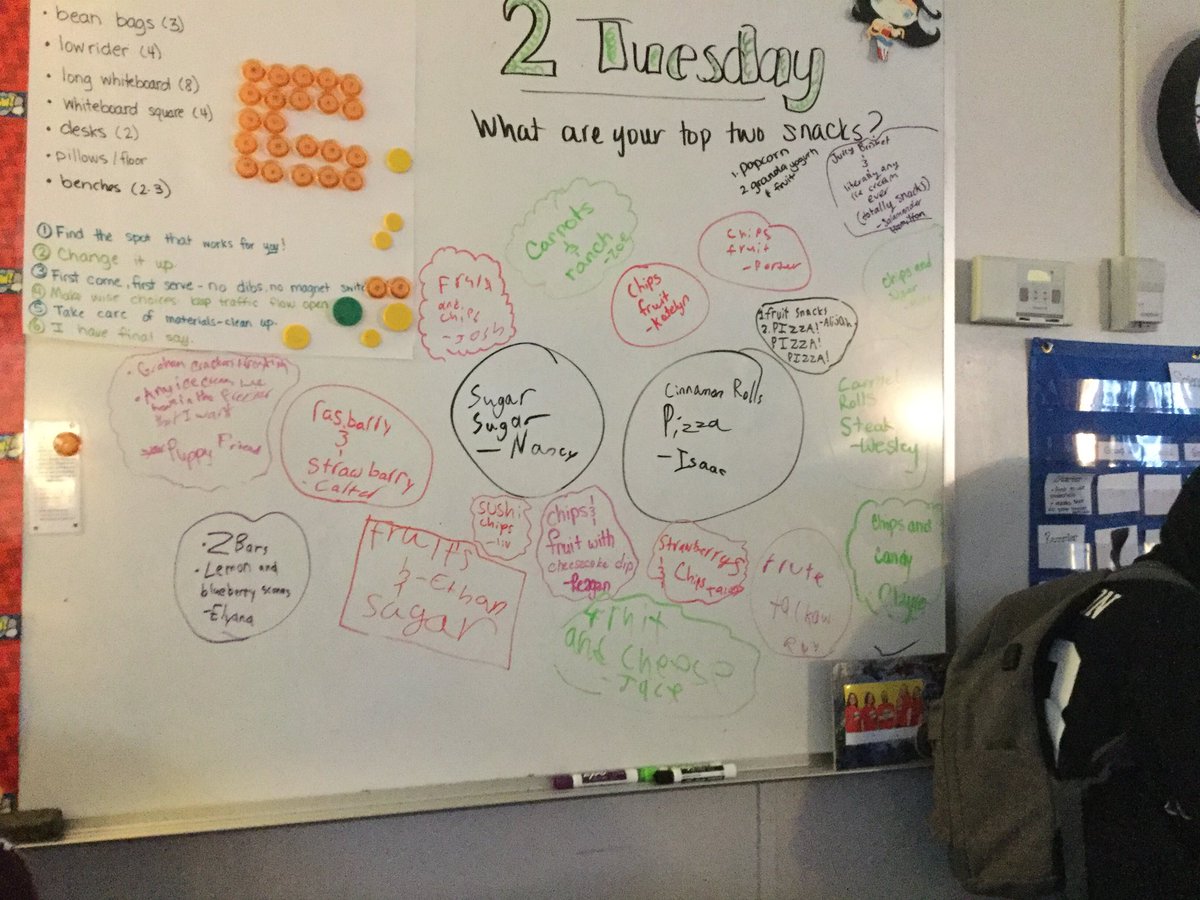 • bean bags (3)
• low rider (4)
• long whiteboard (8)
• whiteboard square (4)
• desks (2)
• pillows/floor
• benches (2-3)
① Find the spot that works for you!
② Change it up.
③ First come, first serve - no dibs, no magnet switc
④ Make wise choices. keep traffic flow open
⑤ Take care of materials - clean up.
⑥ I have final say.
2 Tuesday
What are your top two snacks?
1. popcorn
2. granola yogurt
& fruit
&
literally any
ice cream
ever
(totally snacks)
- Salamander
Hamilton
Carrots
&
ranch - Zoe
Chips
fruit
- Porter
Chips and
Sugar
and
chips
- Josh
Chips
fruit
- Katelyn
1. fruit snacks
2. PIZZA! - Alijah
PIZZA!
PIZZA!
• Graham crackers
• Any ice cream we
have in the freezer
that I want
- Puppy Friend
rasbarry
&
strawbarry
Sugar
Sugar
- Nancy
Cinnamon Rolls
Pizza
- Isaac
Rolls
Steak
- Wesley
• Z Bars
• Lemon and
blueberry scones
- Elyana
fruits
& - Ethan
sugar
sushi
chips
- liv
chips &
fruit with
cheesecake dip
- Reagan
Strawberrys
& Chips
frute
Chips and
candy
and cheese
- Jace